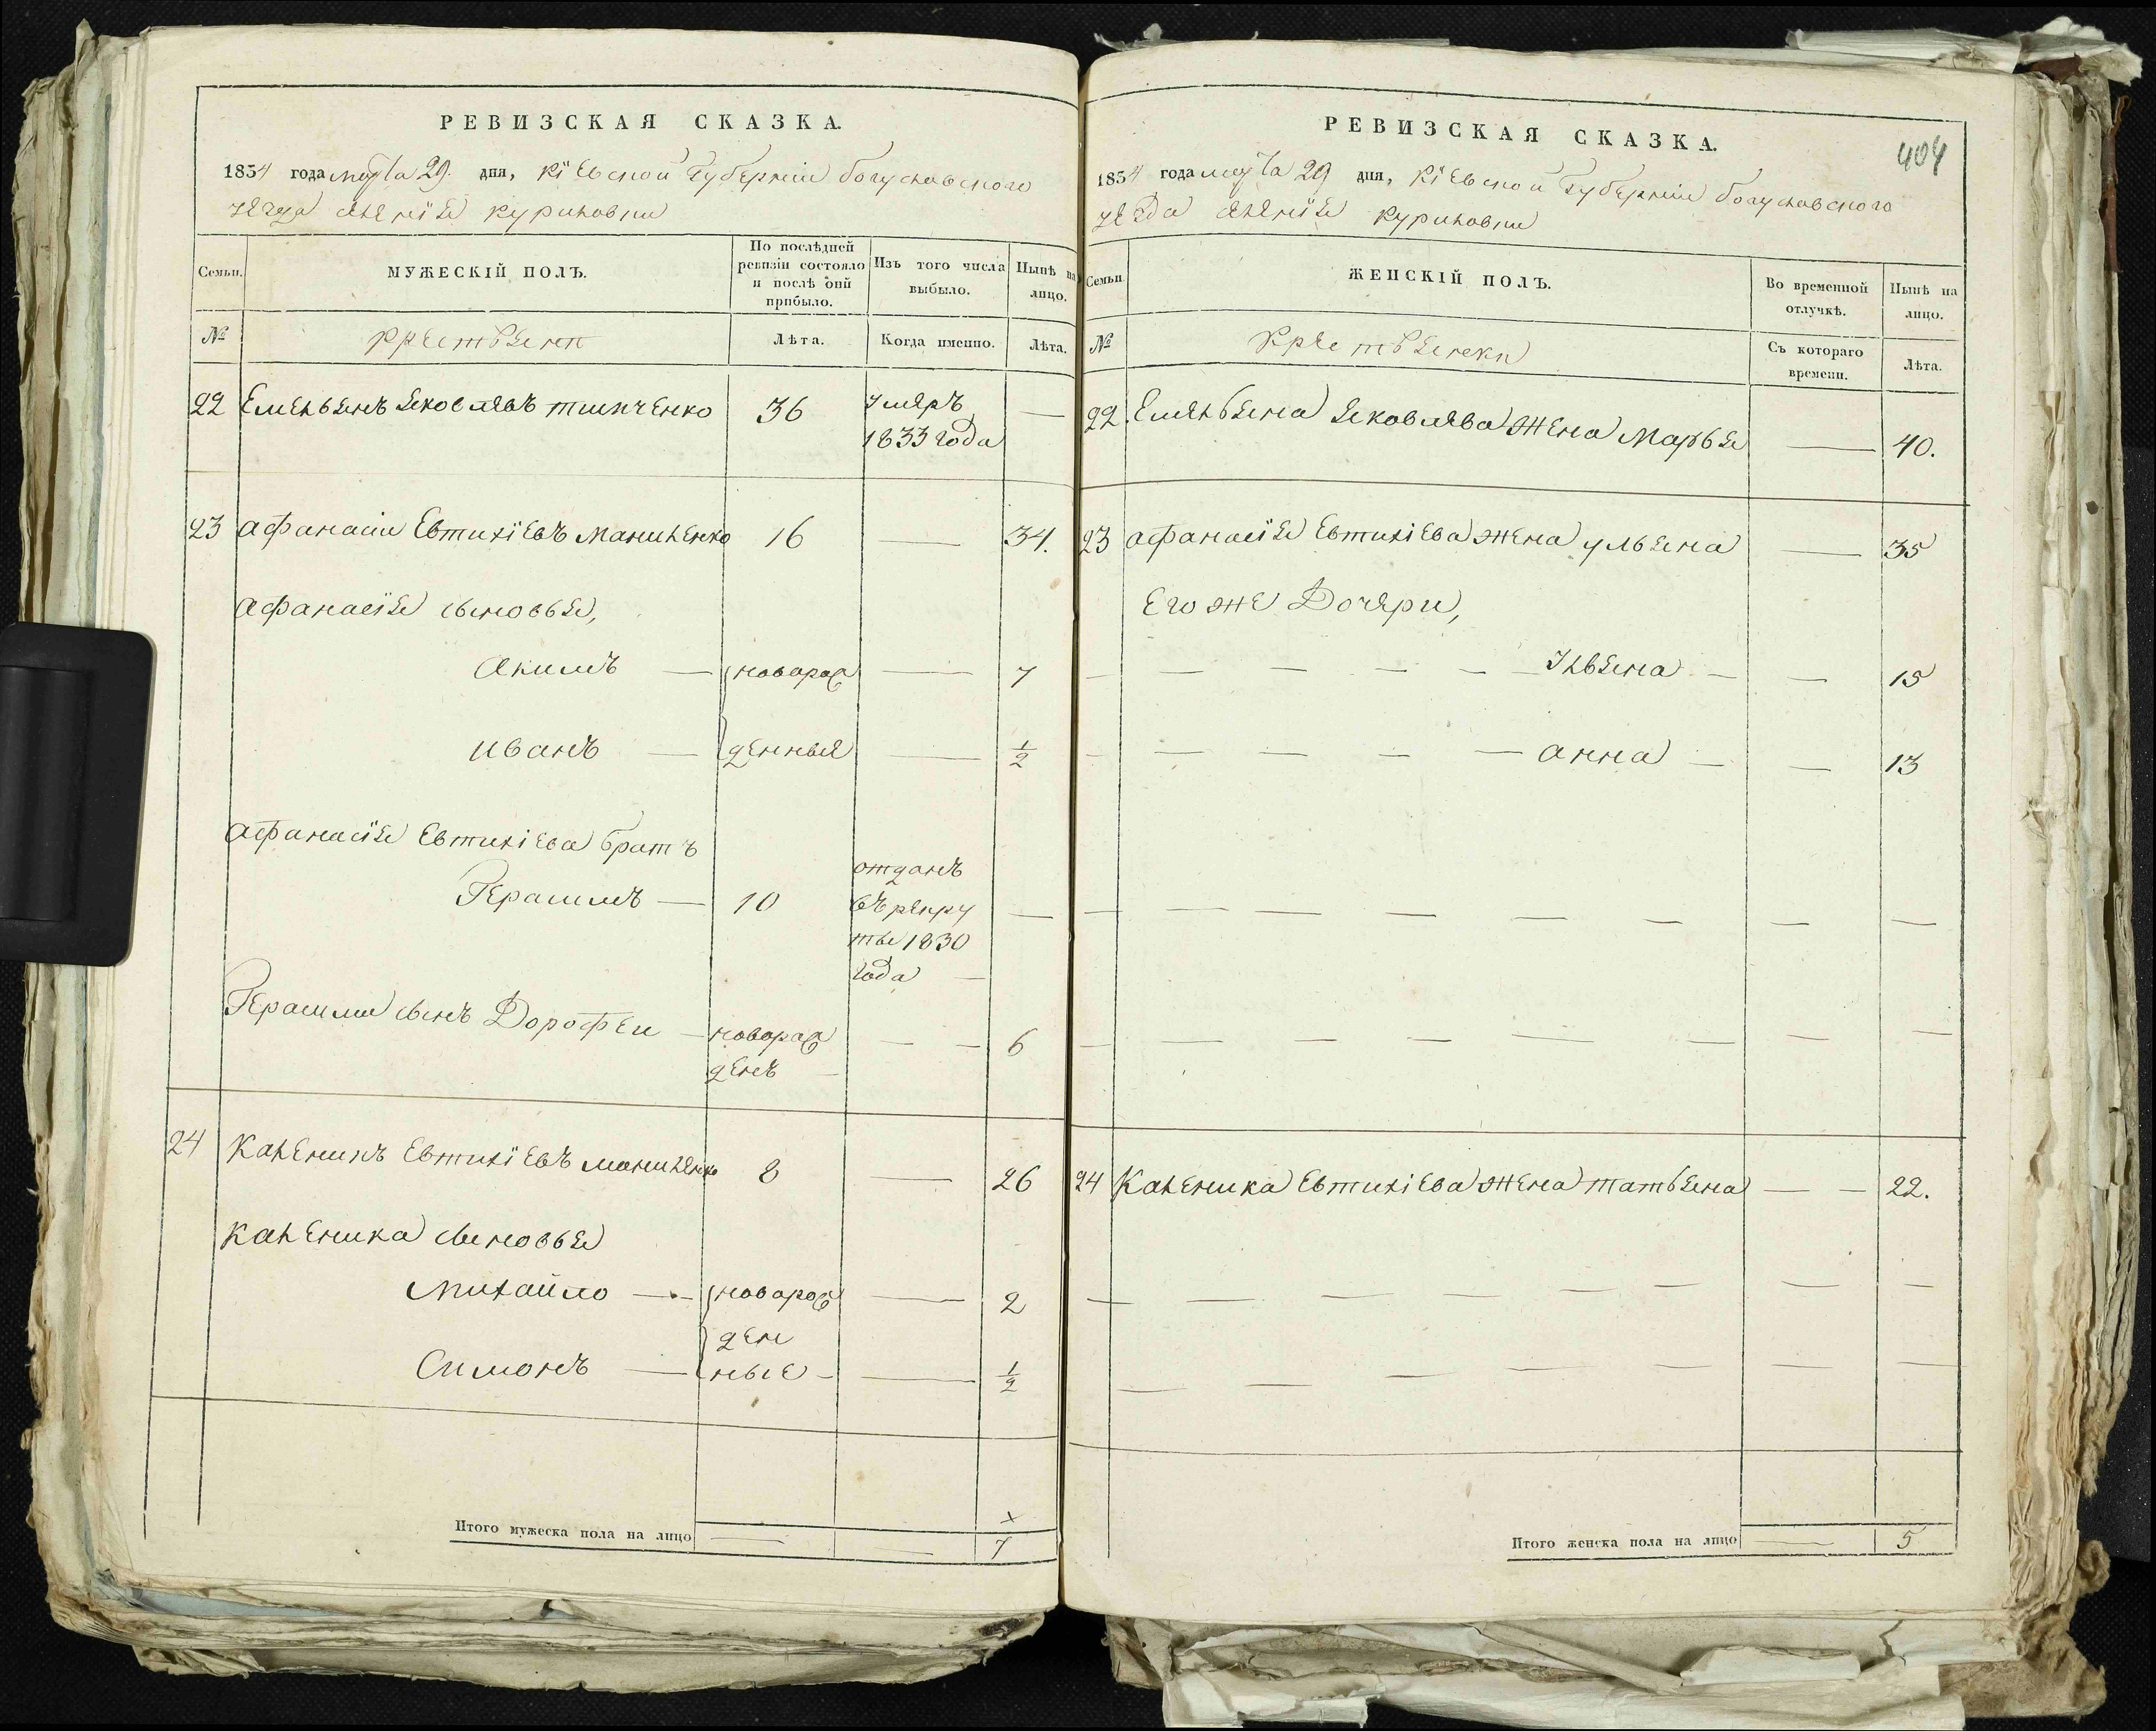 РЕВИЗСКАЯ СКАЗКА.
1834 года марта 29. дня, Кіевской Губерніи Богуславского
уезда селенія Куриловки
Семьи.
МУЖЕСКІЙ ПОЛЪ.
По послѣдней
ревизіи состояло
и послѣ оній
прибыло.
Изъ того числа
выбыло.
Нынѣ на
лицо.
№
Крестьяни
Лѣта.
Когда именно.
Лѣта.
22 Емельянъ Яковлевъ 36 умеръ —
1833 года
23 Афанасіи Евтихіевъ Маниленко 16 — 34.
Афанасія сыновья,
Акимъ — новорож — 7
Иванъ — денныя — 1/2
Афанасія Евтихіева братъ
Герасимъ — 10 отданъ
въ рекру
ты 1830
года —
Герасима сынъ Дорофеи — новорож — — 6
денъ —
24 Каленикъ Евтихіевъ Маниленко 8 — 26
Каленика сыновья
Михайло — новорож — 2
ден
Симонъ — ные — — 1/2
Итого мужеска пола на лицо — — 7
РЕВИЗСКАЯ СКАЗКА.
404
1834 года марта 29 дня, Кіевской Губерніи Богуславского
уезда селенія Куриловки
Семьи
ЖЕНСКІЙ ПОЛЪ.
Во временной
отлучкѣ.
Нынѣ на
лицо.
№
Крестьянки
Съ котораго
времени.
Лѣта.
22. Емельяна Яковлева жена Марья — 40.
23 Афанасія Евтихіева жена Ульяна — 35
Его же Дочери,
— — — — — Ульяна — — 15
— — — — — Анна — — 13
24 Каленика Евтихіева жена Татьяна — — 22.
Итого женска пола на лицо — 5